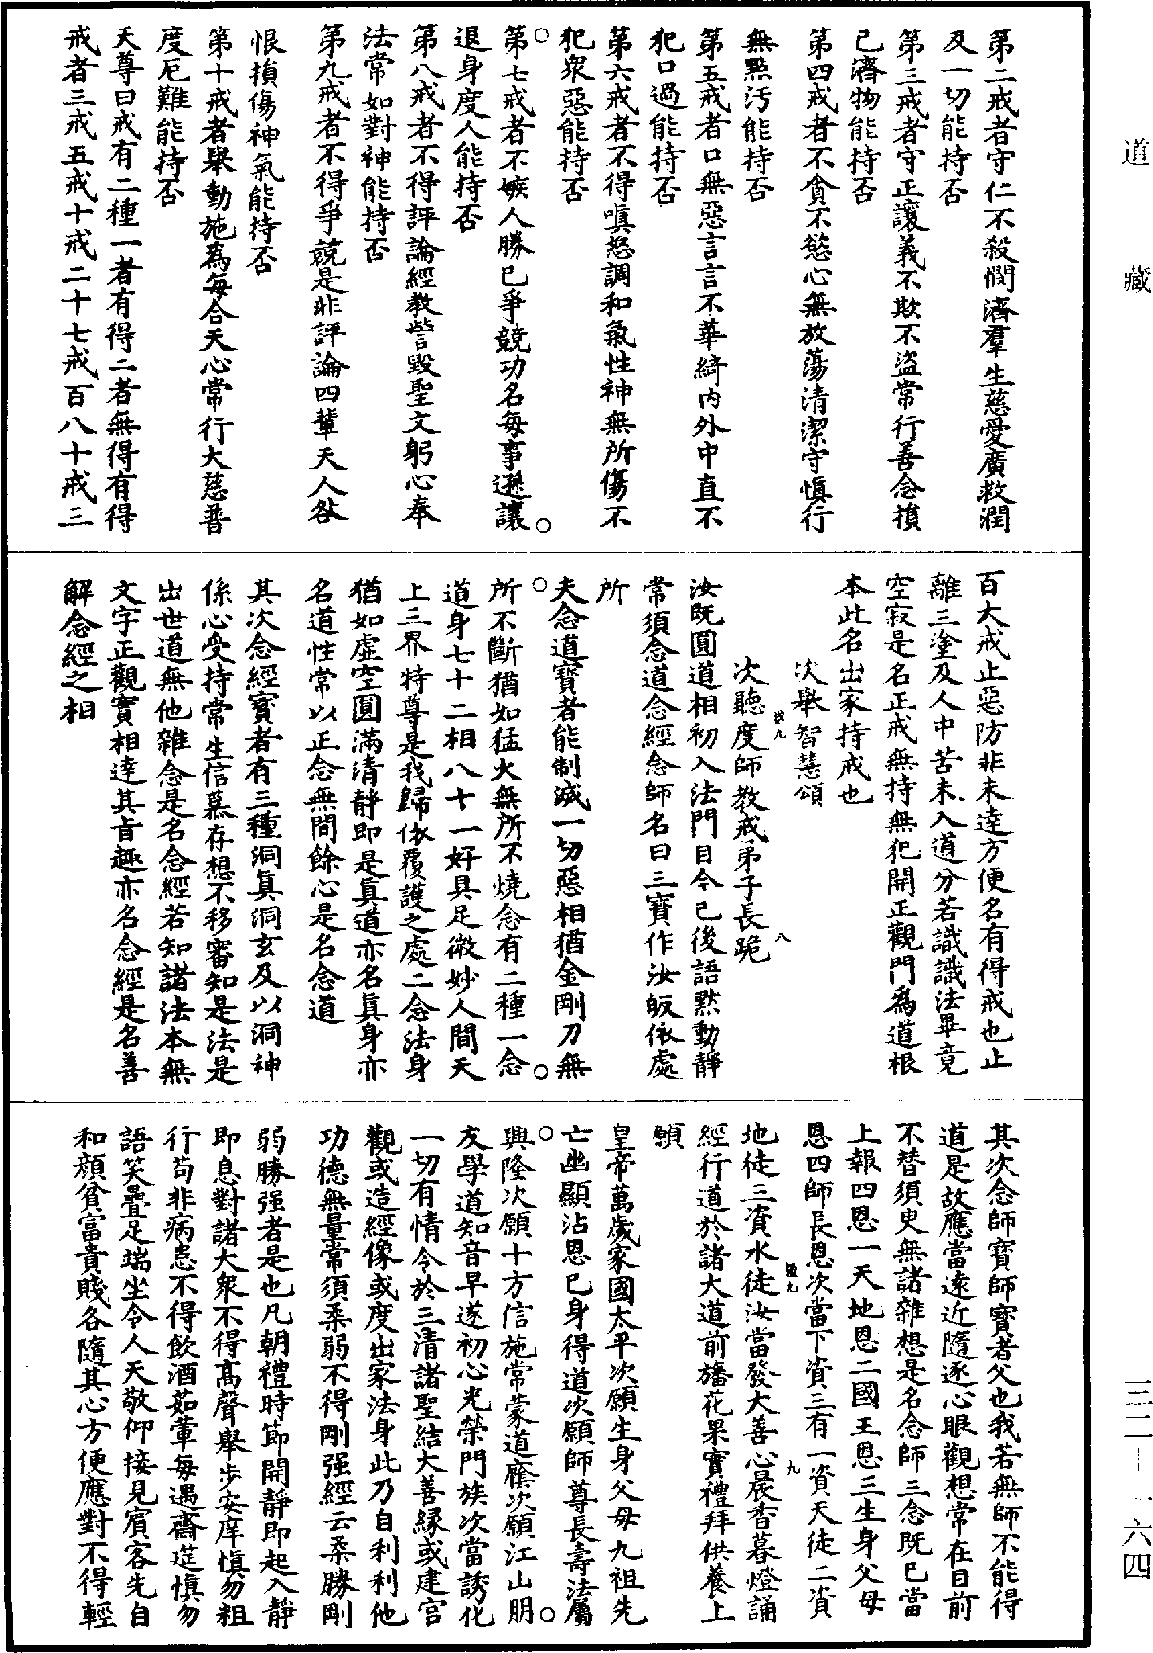 道藏
三二—一六四
第二戒者守仁不殺憫濟羣生慈愛廣救潤
及一切能持否
第三戒者守正讓義不欺不盜常行善念損
己濟物能持否
第四戒者不貪不慾心無放蕩清潔守慎行
無點汚能持否
第五戒者口無惡言言不華綺內外中直不
犯口過能持否
第六戒者不得嗔怒調和氣性神無所傷不
犯衆惡能持否
第七戒者不嫉人勝己爭競功名每事遜讓
退身度人能持否
第八戒者不得評論經教訾毀聖文躬心奉
法常如對神能持否
第九戒者不得爭競是非評論四輩天人咎
恨損傷神氣能持否
第十戒者舉動施爲每合天心常行大慈普
度厄難能持否
天尊曰戒有二種一者有得二者無得有得
戒者三戒五戒十戒二十七戒百八十戒三
百大戒止惡防非未達方便名有得戒也止
離三塗及人中苦未入道分若識識法畢竟
空寂是名正戒無持無犯開正觀門爲道根
本此名出家持戒也
次舉智慧頌
次聽度師教戒弟子長跪
汝既圓道相初入法門目今已後語默動靜
常須念道念經念師名曰三寶作汝皈依處
所
夫念道寶者能制滅一切惡相猶金剛刀無
所不斷猶如猛火無所不燒念有二種一念
道身七十二相八十一好具足微妙人間天
上三界特尊是我歸依覆護之處二念法身
猶如虛空圓滿清靜即是真道亦名真身亦
名道性常以正念無間餘心是名念道
其次念經寶者有三種洞真洞玄及以洞神
係心受持常生信慕存想不移審知是法是
出世道無他雜念是名念經若知諸法本無
文字正觀實相達其旨趣亦名念經是名善
解念經之相
其次念師寶師寶者父也我若無師不能得
道是故應當遠近隨逐心眼觀想常在目前
不替須臾無諸雜想是名念師三念既已當
上報四恩一天地恩二國王恩三生身父母
恩四師長恩次當下資三有一資天徒二資
地徒三資水徒汝當發大善心晨香暮燈誦
經行道於諸大道前旛花果實禮拜供養上
願
皇帝萬歲家國太平次願生身父母九祖先
亡幽顯沾恩已身得道次願師尊長壽法屬
興隆次願十方信施常蒙道廕次願江山朋
友學道知音早遂初心光榮門族次當誘化
一切有情令於三清諸聖結大善緣或建宮
觀或造經像或度出家法身此乃自利利他
功德無量常須柔弱不得剛強經云柔勝剛
弱勝强者是也凡朝禮時節開靜即起入靜
即息對諸大衆不得高聲舉步安庠慎勿粗
行苟非病患不得飲酒茹葷每遇齋筵慎勿
語笑疊足端坐令人天敬仰接見賓客先自
和顏貧富貴賤各隨其心方便應對不得輕